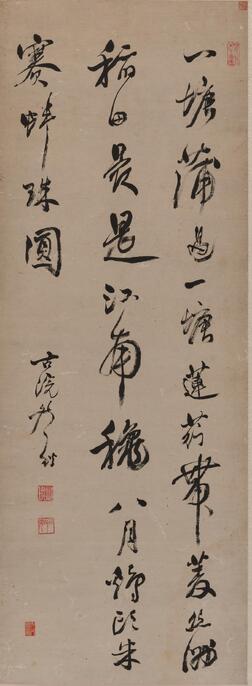 一塘蒲過一塘蓮荇帶菱絲滿
稻田最是江南穐八月鷄頭米
賽蚌珠圓